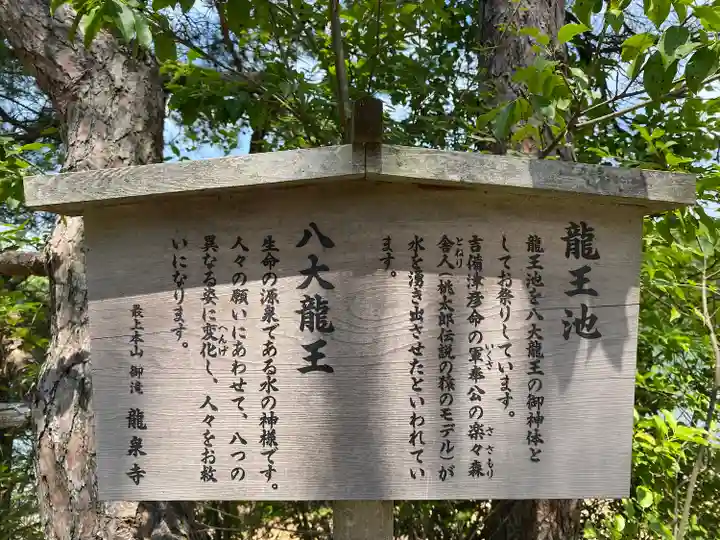 龍王池
龍王池を八大龍王の御神体と
してお祭りしています。
吉備津彦命の軍奉公の楽々森
舎人(桃太郎伝説の猿のモデル)が
水を湧き出させたといわれてい
ます。
八大龍王
生命の源泉である水の神様です。
人々の願いにあわせて、八つの
異なる姿に変化し、人々をお救
いになります。
最上本山 御滝 龍泉寺